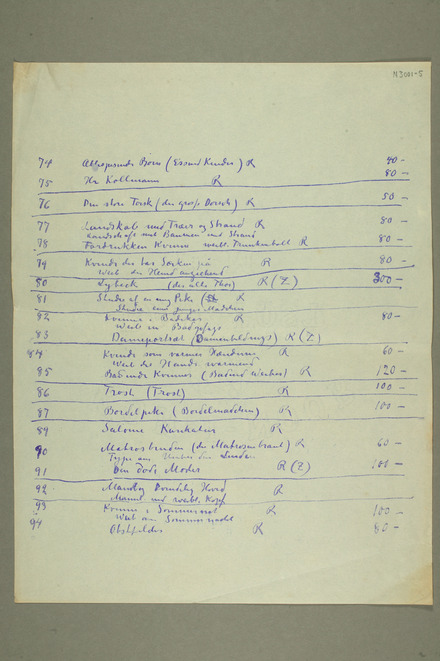 N 3001-5
74 Born (Kinder) R 40 –
75 Hr Kollmann R 80 –
76 Den store Torsk (der große Dorsch) R 50 –
77 Landskab med Træer og Strand R 80 –
Landschaft mit Bäumen und Strand
78 Fordrukken Kvinne R 80 –
79 R 80 –
Weib das Hemd anziehend
80 Lybeck (das alte Thor) R (Z) 300 –
81 Studie af en ung Pike R
Studie eines jungen Mädchens
82 Kvinne i R 80 –
Weib in
83 Dameportræt (Damenbildnis) R (Z)
84 Kvinde som varmer Hænderne R 60 –
Weib die Hände wärmend
85 Badende Kvinner (Badend Weiber) R 120 –
86 Trost (Trost) R 100 –
87 Bordelpike (Bordelmädchen) R 100 –
89 Salome Karikatur R
90 Matrosbruden (die Matrosenbraut) R 60 –
Unter den Linden
91 Den døde Moder R (Z) 100 –
92 Mandlig Hoved R
Mannl. und weibl. Kopf
93 Kvinne i Sommernat R 100 –
Weib in Sommernacht
94 Obstfelder R 80 –